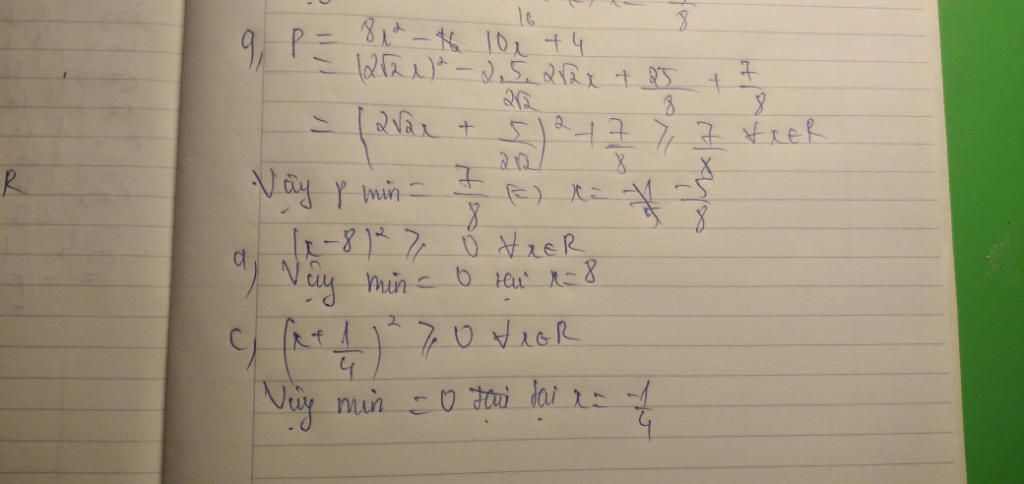 16
8
g, P = 8x² - 16 10x + 4
= (2√2x)² - 2.5/2√2.2√2x + 25/8 + 7/8
= (2√2x + 5/2√2)² + 7/8 ⩾ 7/8 ∀x∈R
R
Vậy P min = 7/8 (=) x = -1/4 -5/8
a, (x-8)² ⩾ 0 ∀x∈R
Vậy min = 0 tại x=8
c, (x+1/4)² ⩾ 0 ∀x∈R
Vậy min = 0 tại tại x = -1/4